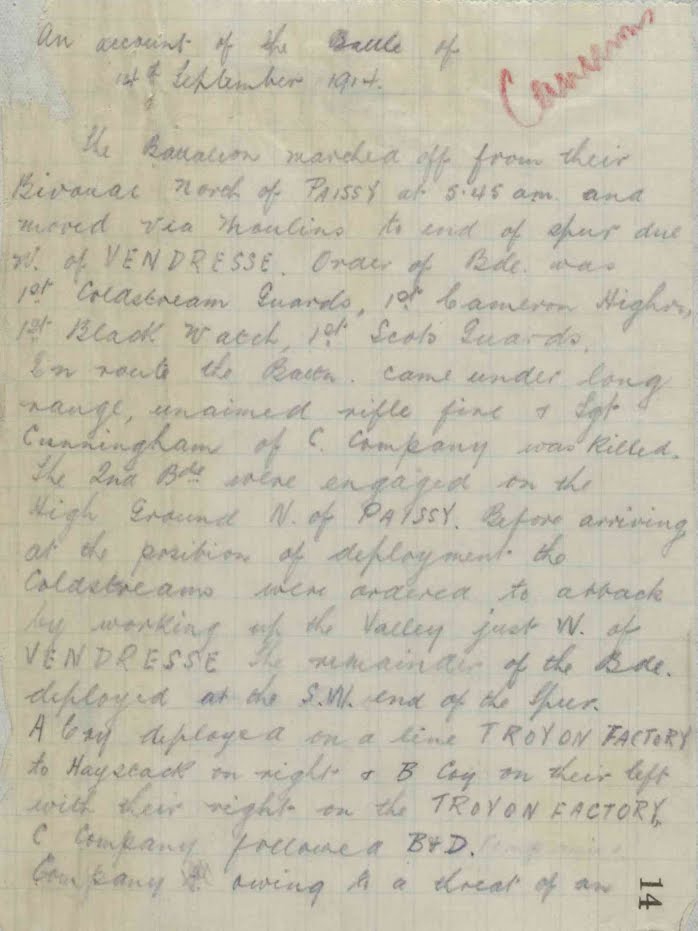 An account of the Battle of
14th September 1914.
Camerons
The Battalion marched off from their
Bivouac North of PAISSY at 5.45 am. and
moved via Moulins to end of spur due
W. of VENDRESSE. Order of Bde. was
1st Coldstream Guards, 1st Cameron Highrs,
1st Black Watch, 1st Scots Guards.
En route the Battn. came under long
range, unaimed rifle fire & Sgt
Cunningham of C. Company was killed.
The 2nd Bde were engaged on the
High Ground N. of PAISSY. Before arriving
at the position of deployment the
Coldstreams were ordered to attack
by working up the Valley just W. of
VENDRESSE The remainder of the Bde.
deployed at the S.W. end of the Spur.
A Coy deployed on a line TROYON FACTORY
to Haystack on right & B Coy on their left
with their right on the TROYON FACTORY,
C Company followed B & D.
Company owing to a threat of an
14